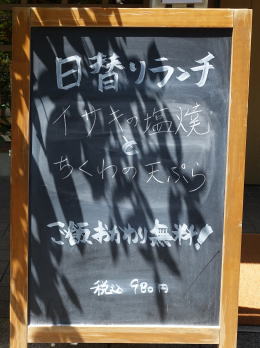 日替りランチ
イサキの塩焼
と
ちくわの天ぷら
ご飯おかわり無料!
税込 980円